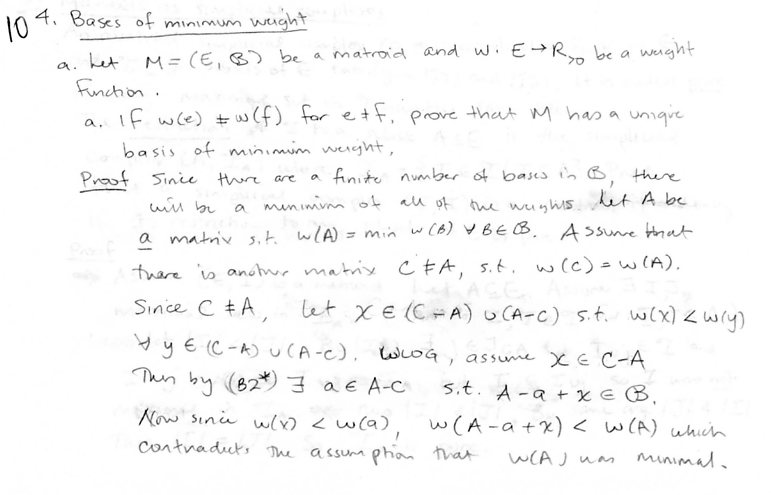 10 4. Bases of minimum weight
a. Let M = (E, ℬ) be a matroid and w: E → R>0 be a weight
Function.
a. If w(e) ≠ w(f) for e ≠ f, prove that M has a unique
basis of minimum weight.
Proof Since there are a finite number of bases in ℬ, there
will be a minimum of all of the weights. Let A be
a matrix s.t. w(A) = min w(B) ∀ B ∈ ℬ. Assume that
there is another matrix C ≠ A, s.t. w(C) = w(A).
Since C ≠ A, let x ∈ (C-A) ∪ (A-C) s.t. w(x) < w(y)
∀ y ∈ (C-A) ∪ (A-C). WLOG, assume x ∈ C-A
Then by (B2*) ∃ a ∈ A-C s.t. A-a+x ∈ ℬ.
Now since w(x) < w(a), w(A-a+x) < w(A) which
contradicts the assumption that w(A) was minimal.